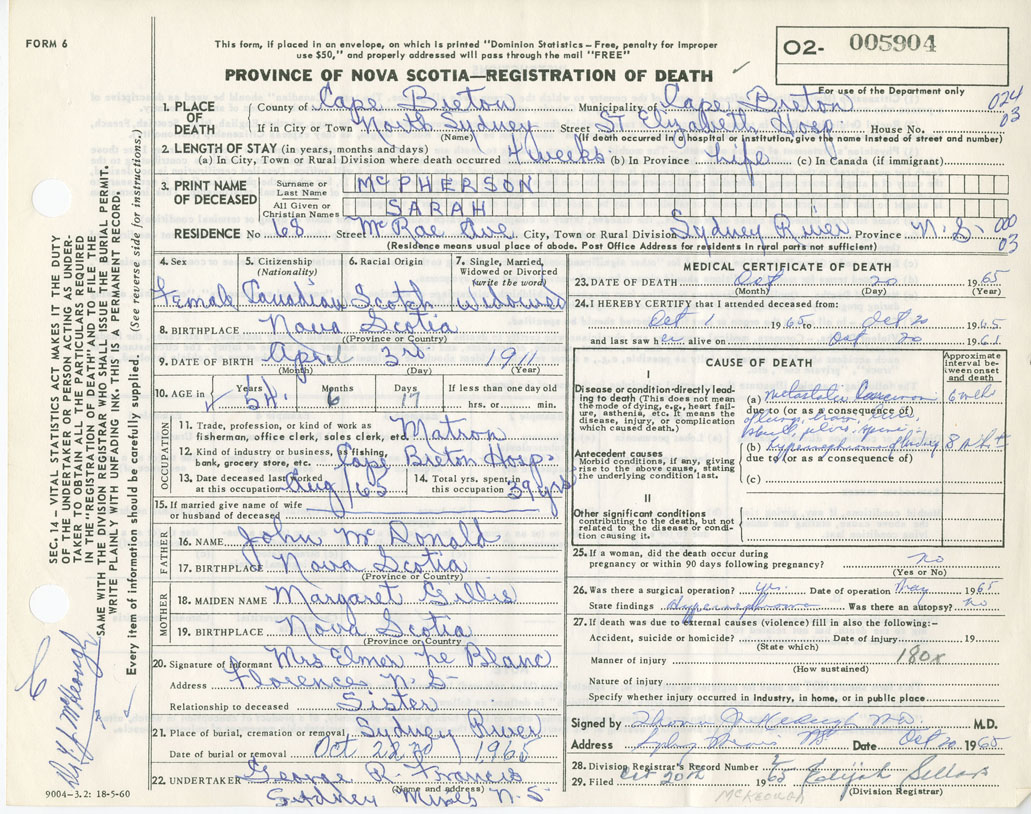 FORM 6
This form, if placed in an envelope, on which is printed "Dominion Statistics – Free, penalty for improper
use $50," and properly addressed will pass through the mail "FREE"
O2- 005904
PROVINCE OF NOVA SCOTIA—REGISTRATION OF DEATH
For use of the Department only
024
03
1. PLACE OF DEATH
County of Cape Breton Municipality of Cape Breton
If in City or Town North Sydney Street St Elizabeth Hosp House No.
(Name) (If death occurred in hospital or institution, give the name instead of street and number)
2. LENGTH OF STAY (in years, months and days)
(a) In City, Town or Rural Division where death occurred 4 weeks (b) In Province Life (c) In Canada (if immigrant)
3. PRINT NAME OF DECEASED
Surname or Last Name McPHERSON
All Given or Christian Names SARAH
RESIDENCE No 68 Street McRae Ave City, Town or Rural Division Sydney River Province N.S- 000
03
(Residence means usual place of abode. Post Office Address for residents in rural parts not sufficient)
4. Sex Female
5. Citizenship (Nationality) Canadian
6. Racial Origin Scotch
7. Single, Married, Widowed or Divorced (write the word) Widowed
8. BIRTHPLACE Nova Scotia
(Province or Country)
9. DATE OF BIRTH April 3rd 1911
(Month) (Day) (Year)
10. AGE in Years 54 Months 6 Days 17 If less than one day old
hrs. or min.
OCCUPATION
11. Trade, profession, or kind of work as
fisherman, office clerk, sales clerk, etc. Matron
12. Kind of industry or business, as fishing,
bank, grocery store, etc. Cape Breton Hosp.
13. Date deceased last worked
at this occupation Aug/65
14. Total yrs. spent in
this occupation 39 yrs
15. If married give name of wife
or husband of deceased
FATHER
16. NAME John McDonald
17. BIRTHPLACE Nova Scotia
(Province or Country)
MOTHER
18. MAIDEN NAME Margaret Gillis
19. BIRTHPLACE Nova Scotia
(Province or Country)
20. Signature of informant Mrs Elmer Le Blanc
Address Florence N-S-
Relationship to deceased Sister
21. Place of burial, cremation or removal Sydney River
Date of burial or removal Oct 1965
22. UNDERTAKER George R. Francis
(Name and address)
Sydney Mines N-S
MEDICAL CERTIFICATE OF DEATH
23. DATE OF DEATH Oct 20 1965
(Month) (Day) (Year)
24. I HEREBY CERTIFY that I attended deceased from:
Oct 1 1965 to Oct 20 1965
and last saw her alive on Oct 20 196
CAUSE OF DEATH
Approximate interval between onset and death
I
Disease or condition directly leading
to death (This does not mean
the mode of dying, e.g., heart failure,
asthenia, etc. It means the
disease, injury, or complication
which caused death.)
(a) metastatic 6 wks
due to (or as a consequence of)
Antecedent causes
Morbid conditions, if any, giving
rise to the above cause, stating
the underlying condition last.
(b) 8
due to (or as a consequence of)
(c)
II
Other significant conditions
contributing to the death, but not
related to the disease or condition
causing it.
25. If a woman, did the death occur during
pregnancy or within 90 days following pregnancy? no
(Yes or No)
26. Was there a surgical operation? yes Date of operation May 1965
State findings Hypernephroma Was there an autopsy? no
27. If death was due to external causes (violence) fill in also the following:-
Accident, suicide or homicide? Date of injury 19
(State which)
Manner of injury 180x
(How sustained)
Nature of injury
Specify whether injury occurred in industry, in home, or in public place
Signed by M.D.
Address Sydney Mines NS Date Oct 20 1965
28. Division Registrar's Record Number
29. Filed Oct 20th 1965
(Division Registrar)
McKEOUGH
SEC. 14 – VITAL STATISTICS ACT MAKES IT THE DUTY
OF THE UNDERTAKER OR PERSON ACTING AS UNDERTAKER
TO OBTAIN ALL THE PARTICULARS REQUIRED
IN THE "REGISTRATION OF DEATH" AND TO FILE THE
SAME WITH THE DIVISION REGISTRAR WHO SHALL ISSUE THE BURIAL PERMIT.
WRITE PLAINLY WITH UNFADING INK. THIS IS A PERMANENT RECORD.
Every item of information should be carefully supplied. (See reverse side for instructions.)
McKeough
9004–3.2: 18-5-60